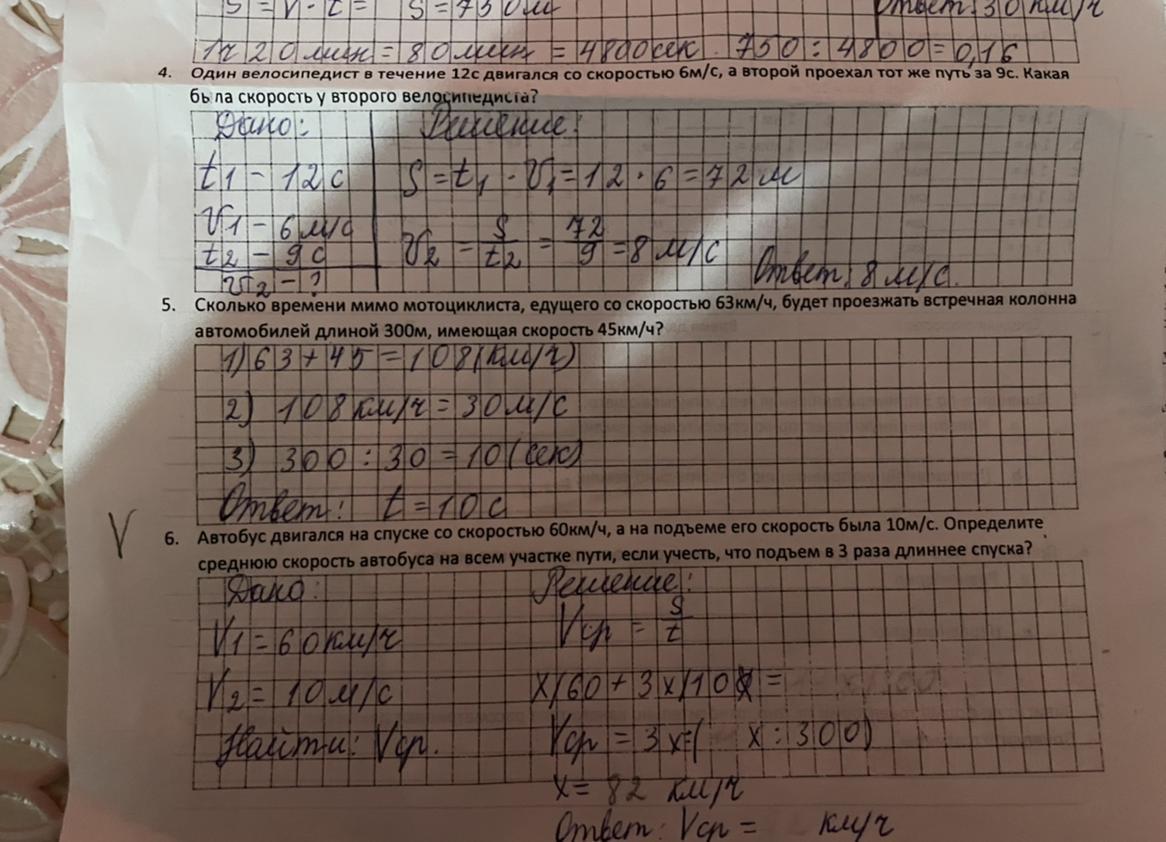 S = V · t = S = 750м
Ответ: 30 км/ч
1ч 20 мин = 80 мин = 4800сек. 750 : 4800 = 0,16
4. Один велосипедист в течение 12с двигался со скоростью 6м/с, а второй проехал тот же путь за 9с. Какая
была скорость у второго велосипедиста?
Дано: Решение:
t1 – 12 с S = t1 · V1 = 12 · 6 = 72 м
V1 – 6 м/с
t2 – 9 с V2 = S/t2 = 72/9 = 8 м/с
V2 – ? Ответ: 8 м/с.
5. Сколько времени мимо мотоциклиста, едущего со скоростью 63км/ч, будет проезжать встречная колонна
автомобилей длиной 300м, имеющая скорость 45км/ч?
1) 63 + 45 = 108 (км/ч)
2) 108 км/ч = 30 м/с
3) 300 : 30 = 10 (сек)
Ответ: t = 10 с
V
6. Автобус двигался на спуске со скоростью 60км/ч, а на подъеме его скорость была 10м/с. Определите
среднюю скорость автобуса на всем участке пути, если учесть, что подъем в 3 раза длиннее спуска?
Дано: Решение:
V1 = 60 км/ч Vср = S/t
V2 = 10 м/с x/60 + 3x/10 =
Найти: Vср. Vср = 3x=( x : 300)
x = 82 км/ч
Ответ: Vср = км/ч